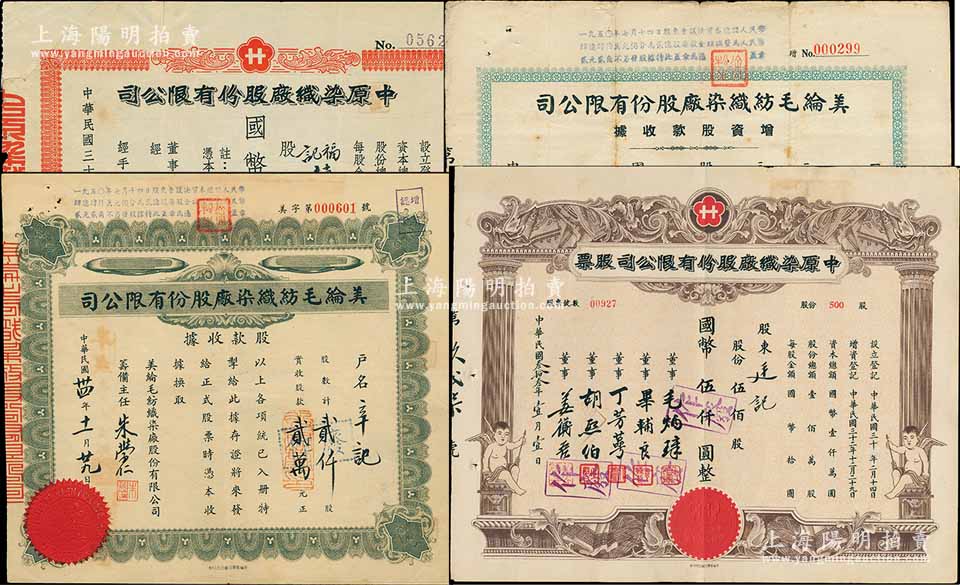 上海陽明拍賣
www.yangmingauction.com
No. 0562
中原染織廠股份有限公司
中華民國三十
國幣
股
福記
註：
憑本
董事
經
經手
設立登
資本總
股份總
每股金
一九五〇年七月十四日股東會議決資本總額人民幣
增 No. 000299
美綸毛紡織染廠股份有限公司
增資股款收據
一九五〇年七月十四日股東會議決資本總額人民幣
美字第 000601 號
增認
美綸毛紡織染廠股份有限公司
股款收據
戶名 辛記
股數計 貳仟 股
實收股款 貳萬 元正
以上各項統已入冊特
掣給此據存證將來發
給正式股票時憑本收
據換取
美綸毛紡織染廠股份有限公司
籌備主任 朱學仁
中華民國 卅四年十一月廿九日
中原染織廠股份有限公司股票
股票號數 00927
股份 500 股
設立登記 中華民國三十年二月十四日
增資登記 中華民國三十二年十二月二十九日
資本總額 國幣壹仟萬圓
股份總額 壹佰萬股
每股金額 國幣拾圓
股東 廷記
股份 伍佰 股
國幣 伍仟 圓整
董事
董事 畢輔良
董事 丁芳萼
董事 胡亞伯
董事
中華民國叁拾叁年壹月壹日
作廢
上海陽明拍賣
www.yangmingauction.com
上海陽明拍賣
www.yangmingauction.com